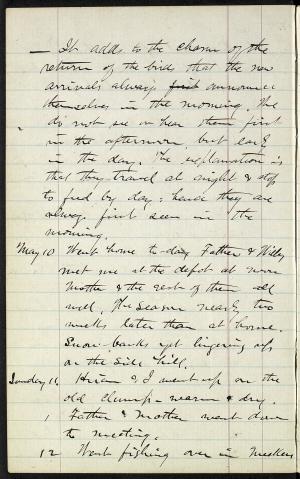 — It adds to the charm of the
return of the birds that the new
arrivals always first announce
themselves in the morning. We
do not see or hear them first
in the afternoon, but early
in the day. The explanation is
that they travel at night & stop
to feed by day; hence they are
always first seen in the
morning.
May 10 Went home to-day Father & Willy
met me at the depot at noon
Mother & the rest of them all
well. The season nearly two
weeks later than at home.
Snow-banks yet lingering up
on the side hill.
Sunday 11, Hiram & I went up on the
old clump – warm & dry.
Father & Mother went down
to meeting.
12 Went fishing over in Meeker's